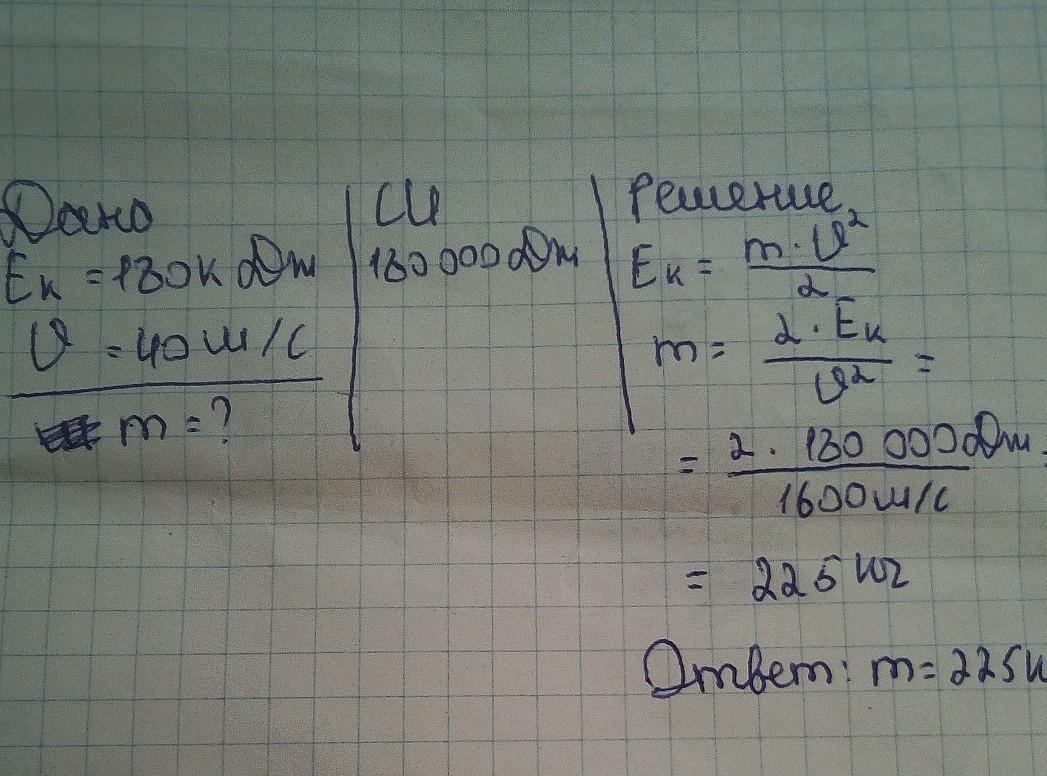 Дано
Eк = 180 кДж
υ = 40 м/с
m = ?
СИ
180 000 Дж
Решение
Eк = m · υ² / 2
m = 2 · Eк / υ² =
= 2 · 180 000 Дж / 1600 м/с =
= 225 кг
Ответ: m = 225 к